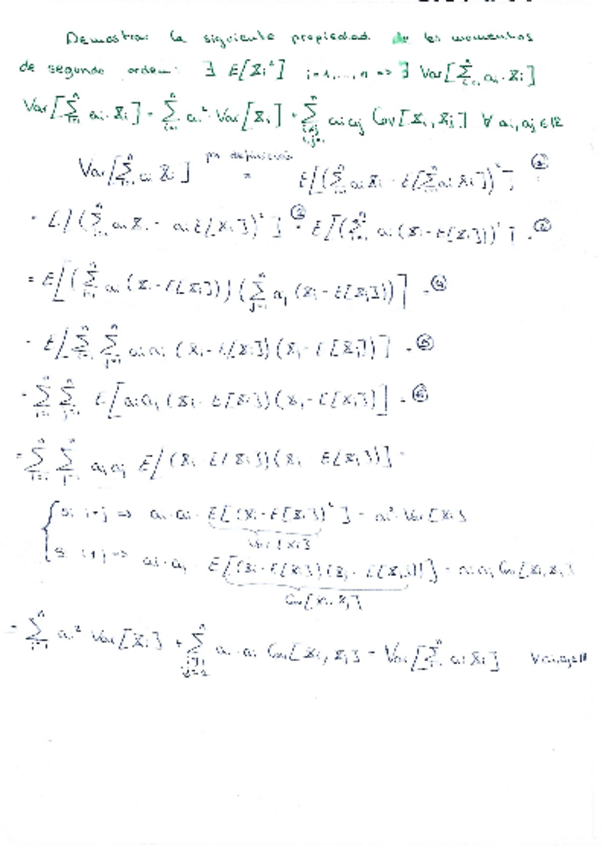 Demostrar la siguiente propiedad de los momentos
de segundo orden: ∃ E[X_i²] i=1,...,n => ∃ Var[∑_{i=1}^n a_i·X_i]
Var[∑_{i=1}^n a_i·X_i] = ∑_{i=1}^n a_i²·Var[X_i] + ∑_{i≠j}^n a_i a_j Cov[X_i, X_j] ∀ a_i, a_j ∈ ℝ
Var[∑_{i=1}^n a_i X_i] por definición = E[(∑_{i=1}^n a_i X_i - E[∑_{i=1}^n a_i X_i])²]
= E[(∑_{i=1}^n a_i X_i - a_i E[X_i])²] = E[(∑_{i=1}^n a_i (X_i - E[X_i]))²] =
= E[(∑_{i=1}^n a_i (X_i - E[X_i])) (∑_{j=1}^n a_j (X_j - E[X_j]))] = ④
= E[∑_{i=1}^n ∑_{j=1}^n a_i a_j (X_i - E[X_i]) (X_j - E[X_j])] = ⑤
= ∑_{i=1}^n ∑_{j=1}^n E[a_i a_j (X_i - E[X_i]) (X_j - E[X_j])] = ⑥
= ∑_{i=1}^n ∑_{j=1}^n a_i a_j E[(X_i - E[X_i]) (X_j - E[X_j])] =
{ si i=j => a_i·a_i·E[(X_i - E[X_i])²] = a_i² Var[X_i]
Var[X_i]
si i≠j => a_i·a_j E[(X_i - E[X_i])(X_j - E[X_j])] = a_i a_j Cov[X_i, X_j]
Cov[X_i, X_j]
= ∑_{i=1}^n a_i² Var[X_i] + ∑_{i≠j}^n a_i·a_j Cov[X_i, X_j] = Var[∑_{i=1}^n a_i X_i] ∀ a_i, a_j ∈ ℝ